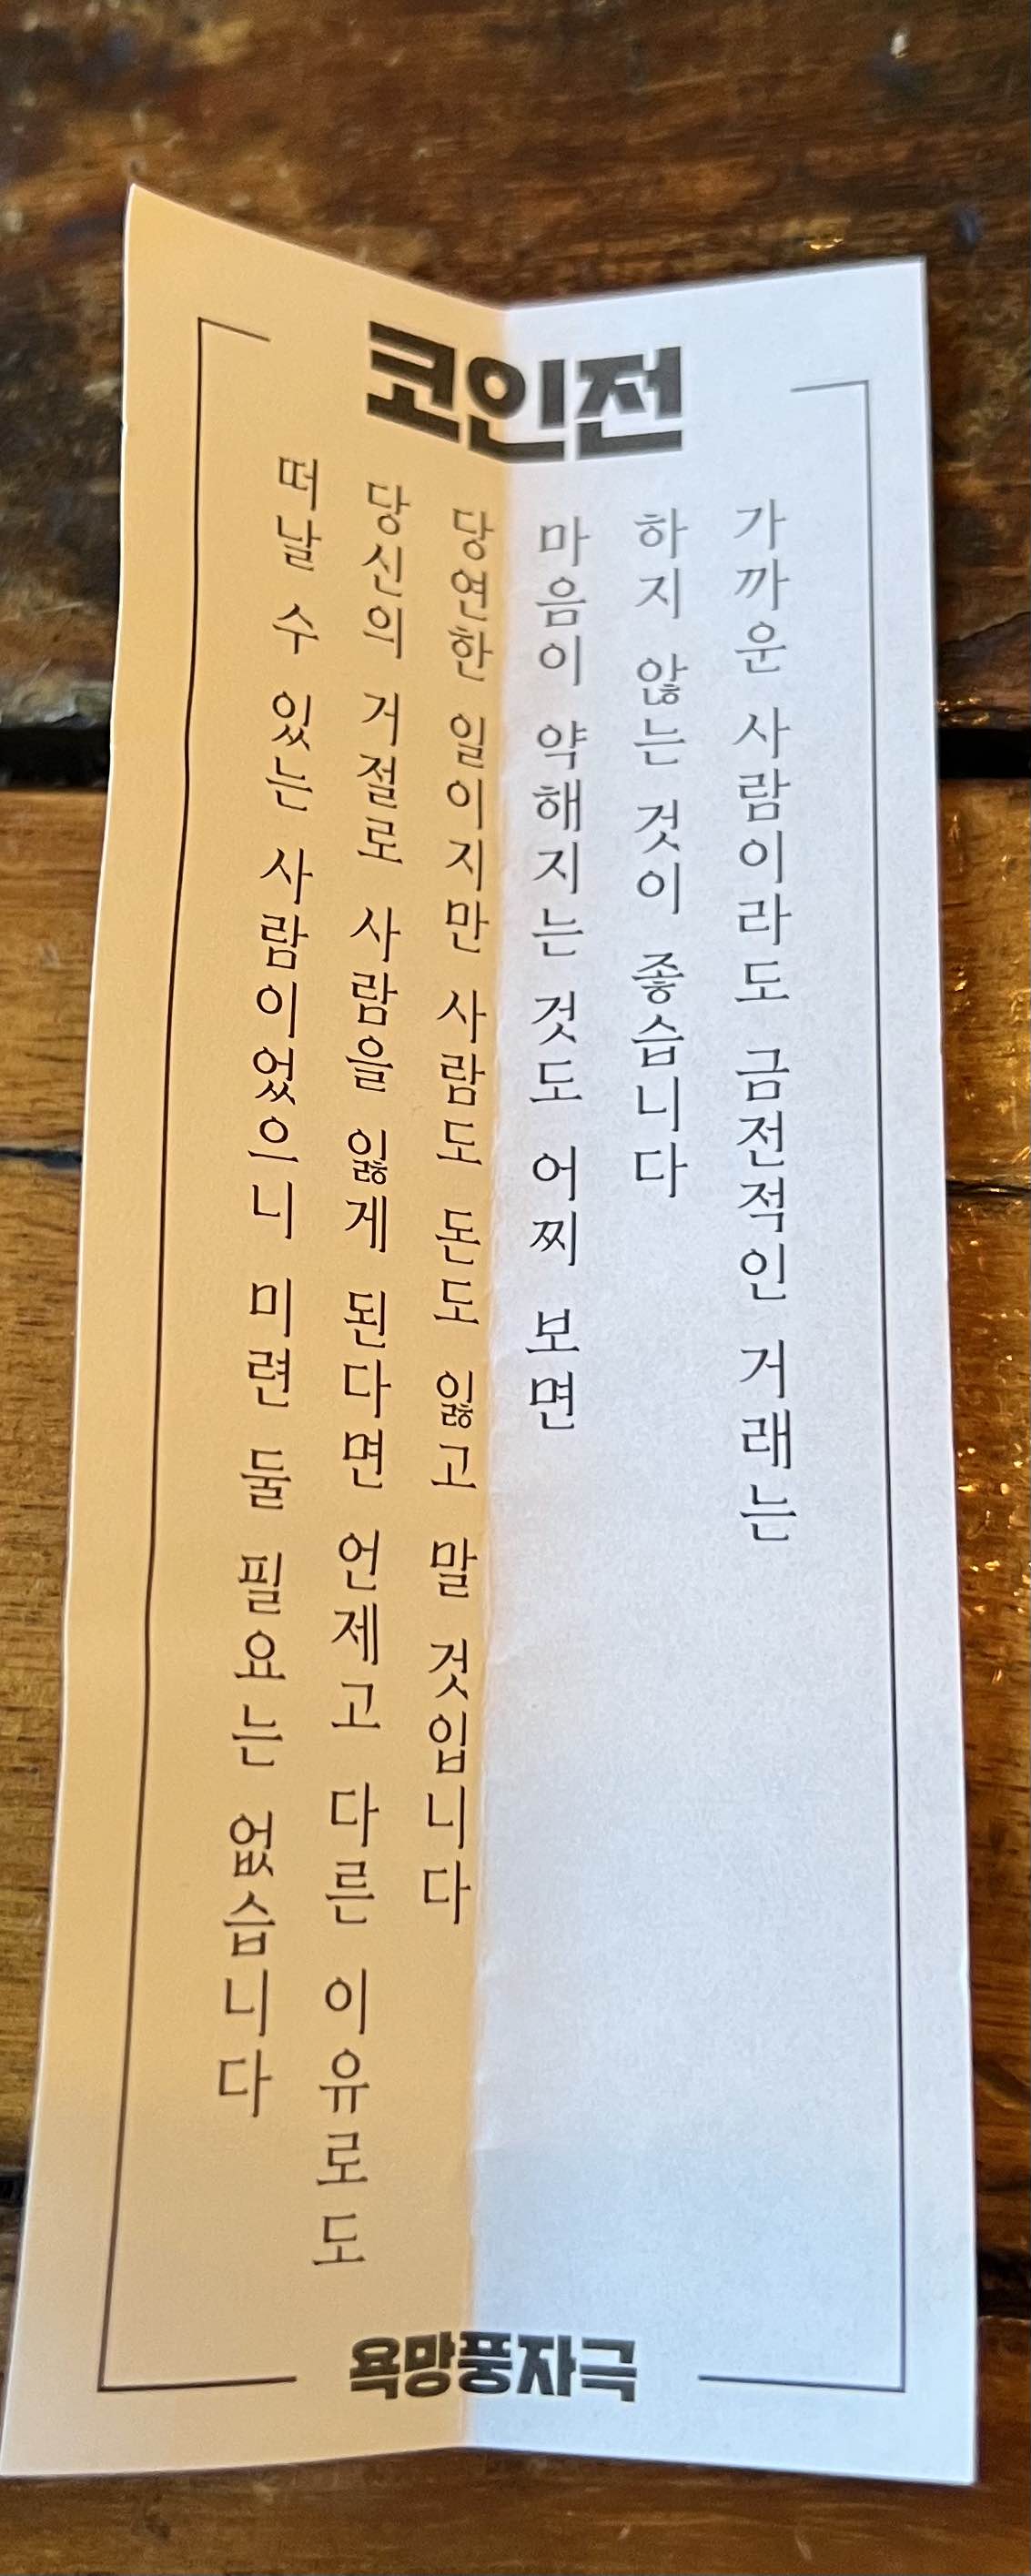 코인전
가까운 사람이라도 금전적인 거래는
하지 않는 것이 좋습니다
마음이 약해지는 것도 어찌 보면
당연한 일이지만 사람도 돈도 잃고 말 것입니다
당신의 거절로 사람을 잃게 된다면 언제고 다른 이유로도
떠날 수 있는 사람이었으니 미련 둘 필요는 없습니다
욕망풍자극